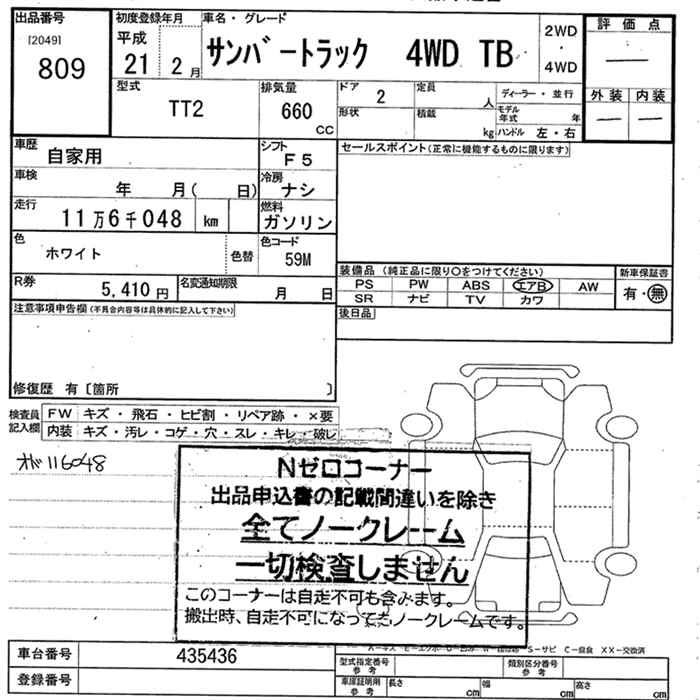 出品番号
[2049]
809
初度登録年月
平成
21 2月
車名・グレード
サンバートラック 4WD TB
2WD
・
4WD
評価点
—
外装 内装
— —
型式
TT2
排気量
660
CC
ドア
2
定員
人
形状
積載
kg
ディーラー・並行
モデル年式 年
ハンドル 左・右
車歴
自家用
シフト
F5
車検
年 月( 日)
冷房
ナシ
走行
11万6千048 km
燃料
ガソリン
色
ホワイト
色替
色コード
59M
R券
5,410円
名変通知期限
月 日
セールスポイント(正常に機能するものに限ります)
装備品(純正品に限り○をつけてください)
PS PW ABS エアB AW
SR ナビ TV カワ
新車保証書
有・無
後日品
注意事項申告欄(不具合内容等は具体的に記入して下さい)
修復歴 有〔箇所 〕
検査員記入欄
FW キズ・飛石・ヒビ割・リペア跡・×要
内装 キズ・汚レ・コゲ・穴・スレ・キレ・破レ
オド116048
Nゼロコーナー
出品申込書の記載間違いを除き
全てノークレーム
一切検査しません
このコーナーは自走不可も含みます。
搬出時、自走不可になってもノークレームです。
S-サビ C-腐食 XX-交換済
車台番号 435436
登録番号
型式指定番号 参考
類別区分番号 参考
車庫証明用 参考
長さ cm 幅 cm 高さ cm